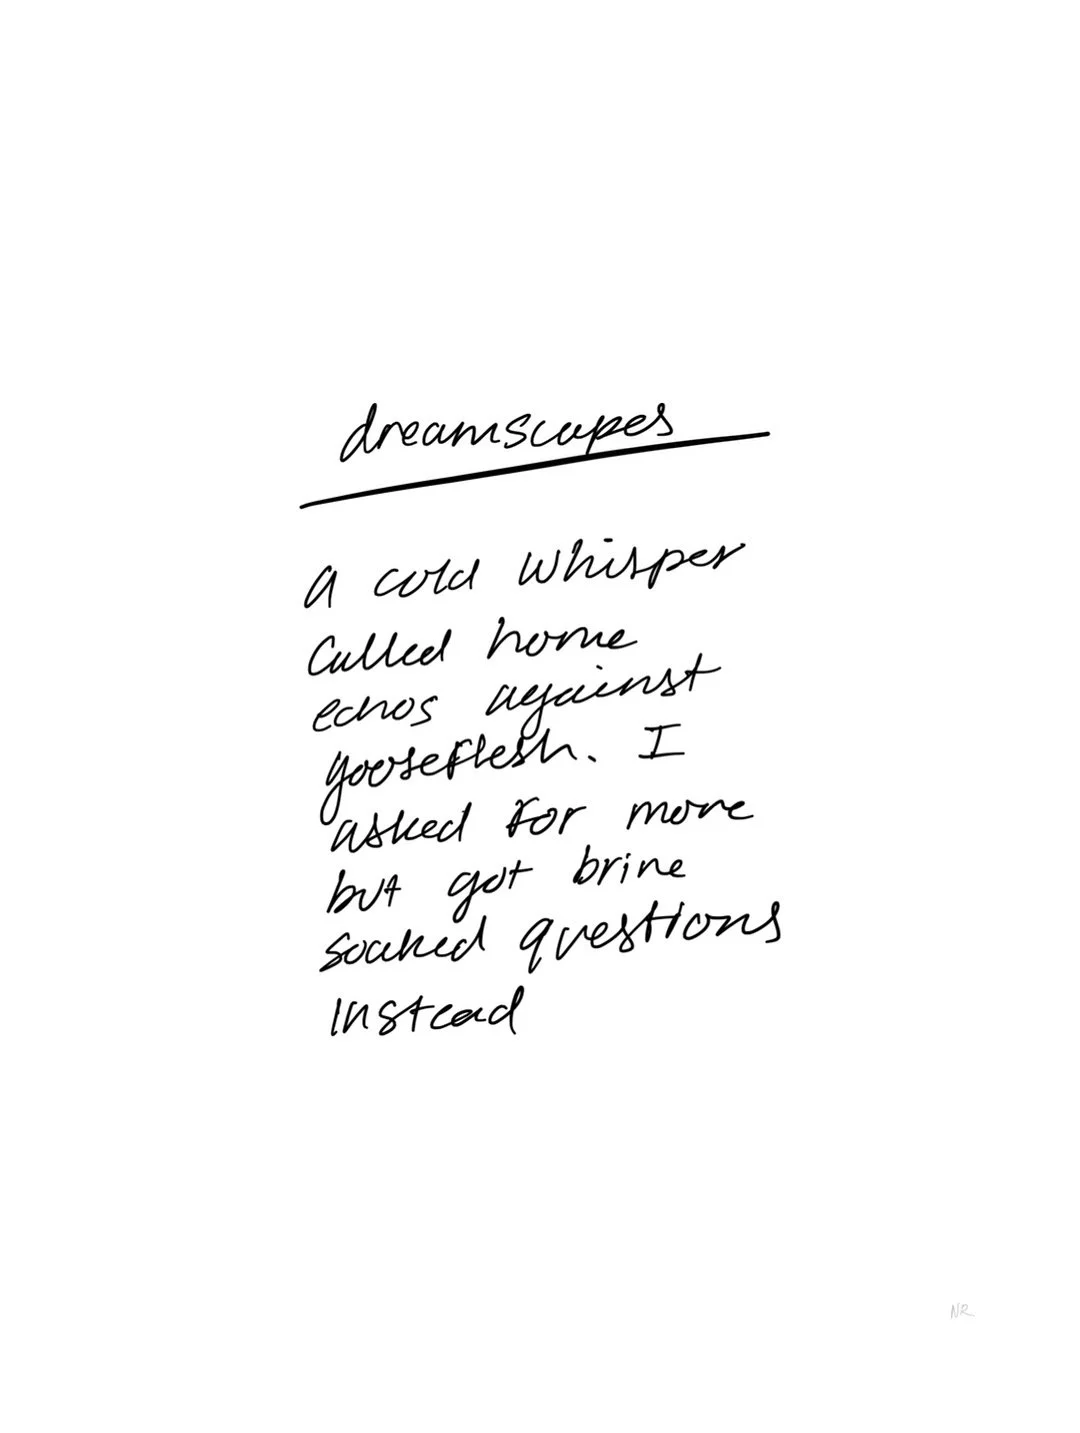 dreamscapes
a cold whisper
called home
echos against
gooseflesh. I
asked for more
but got brine
soaked questions
instead
NR